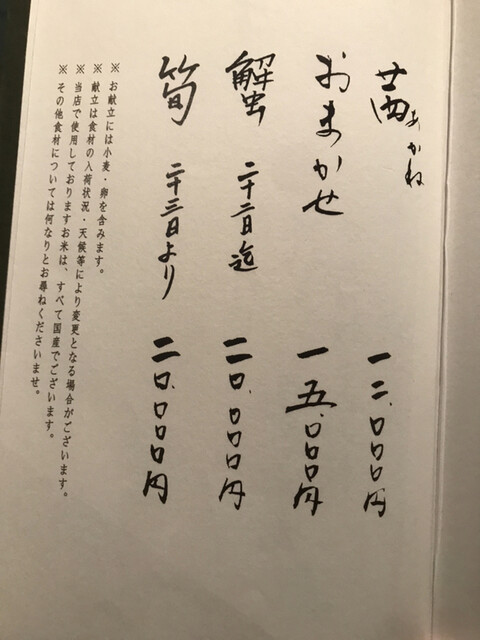 茜 あかね 一二、〇〇〇円
おまかせ 一五、〇〇〇円
蟹 二十二日迄 二〇、〇〇〇円
筍 二十三日より 二〇、〇〇〇円
※ お献立には小麦・卵を含みます。
※ 献立は食材の入荷状況・天候等により変更となる場合がございます。
※ 当店で使用しておりますお米は、すべて国産でございます。
※ その他食材については何なりとお尋ねくださいませ。